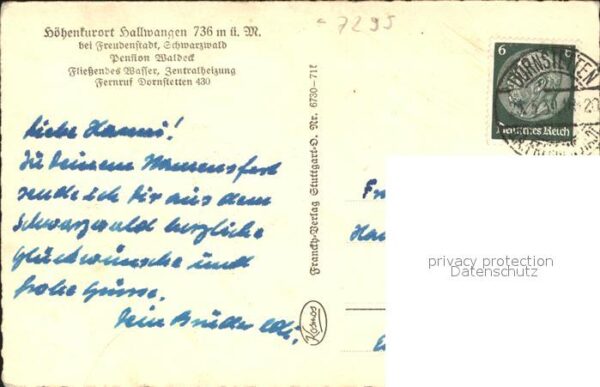 Höhenkurort Hallwangen 736 m ü. M.
bei Freudenstadt, Schwarzwald
Pension Waldeck
Fließendes Wasser, Zentralheizung
Fernruf Dornstetten 430
7295
Liebe Hanni!
Zu Deinem Namensfest
sende ich Dir aus dem
Schwarzwald herzliche
Glückwünsche und
frohe Grüsse.
Dein Bruder
Franckh-Verlag Stuttgart-O. Nr. 6730-71f
Kosmos
6
DORNSTETTEN
Deutsches Reich
privacy protection
Datenschutz